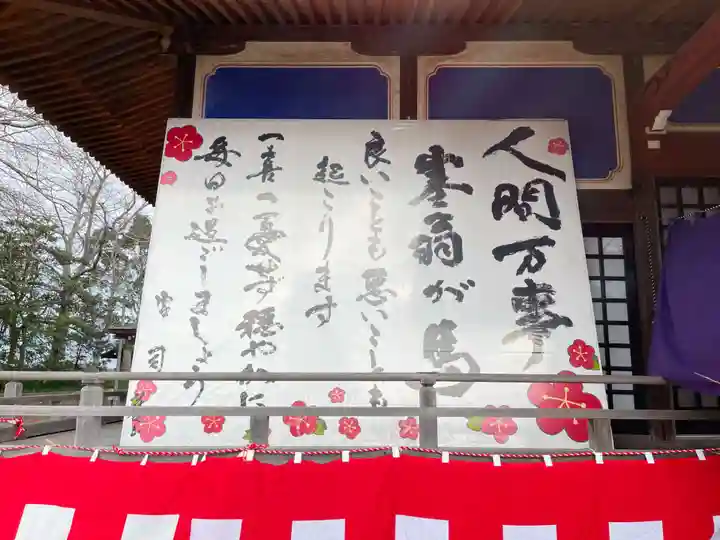 人間万事
塞翁が馬
良いことも悪いことも
起こります
一喜一憂せず穏やかに
毎日お過ごしましょう
宮司